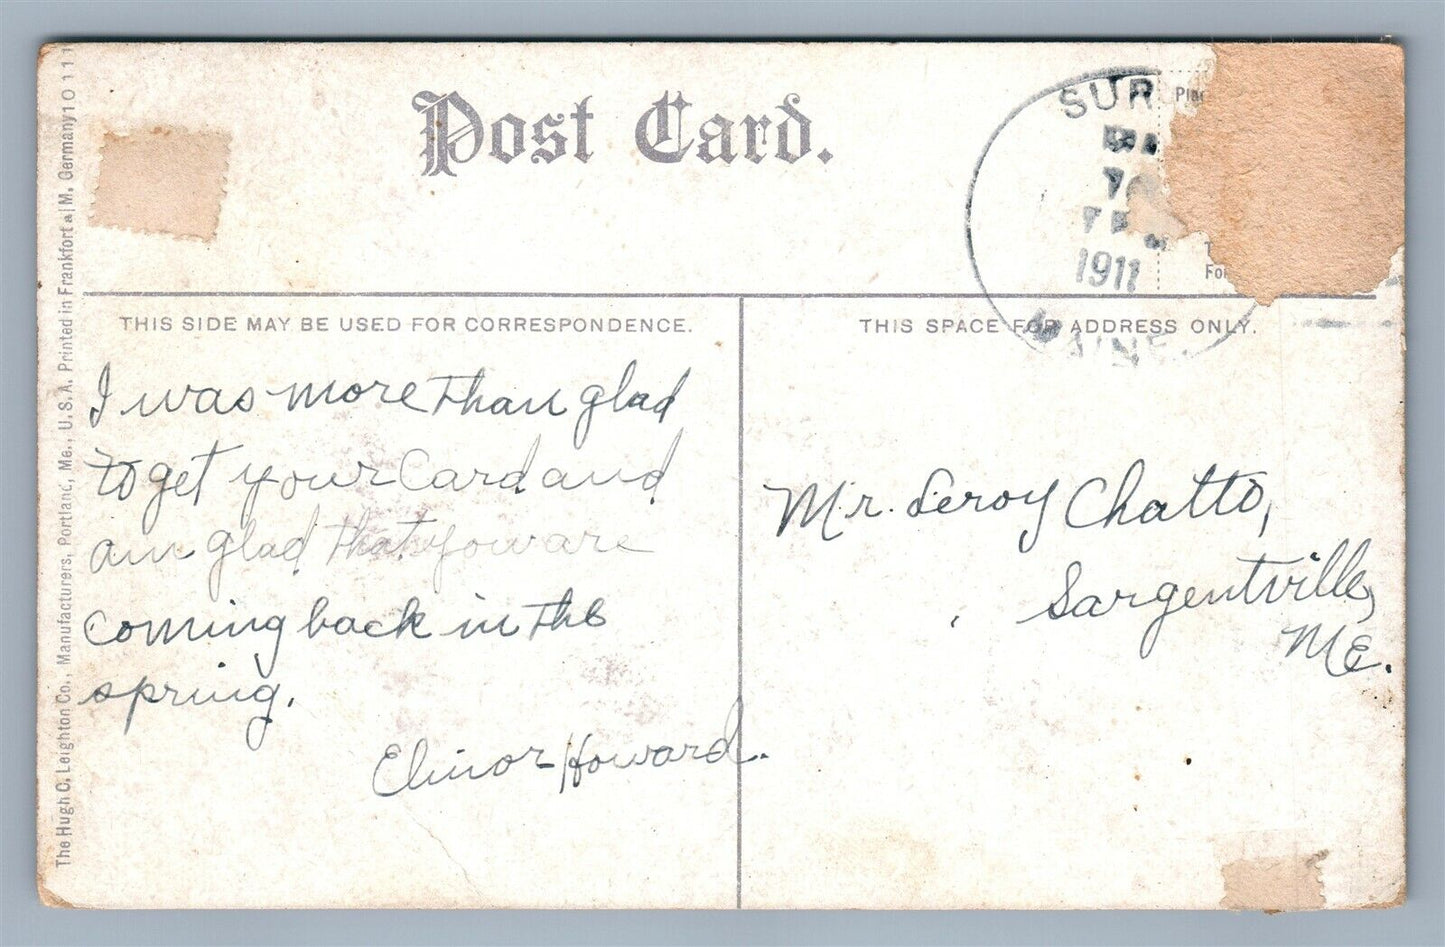 Post Card.
SUR
1911
MAINE.
THIS SIDE MAY BE USED FOR CORRESPONDENCE.
THIS SPACE FOR ADDRESS ONLY.
I was more than glad
to get your Card and
am glad that you are
coming back in the
spring.
Elinor Howard.
Mr. Leroy Chatto,
Sargentville,
ME.
The Hugh C. Leighton Co., Manufacturers, Portland, Me., U.S.A. Printed in Frankfort a/M. Germany 10111